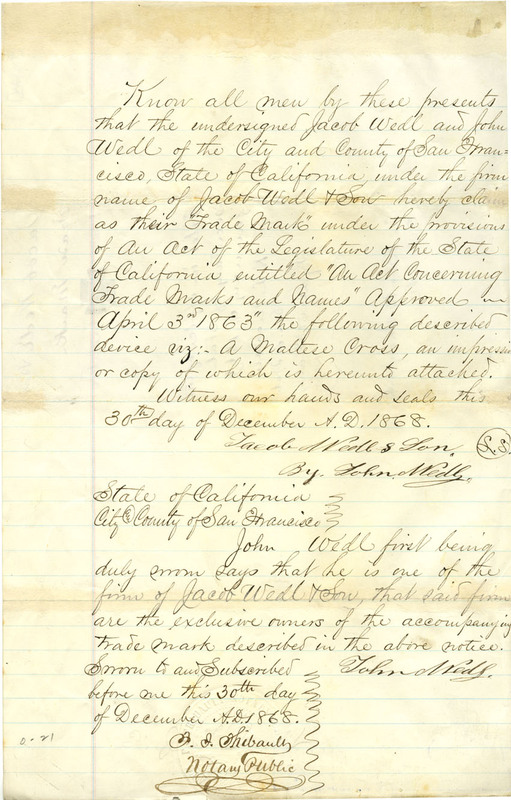 Know all men by these presents
that the undersigned Jacob Wedl and John
Wedl of the City and County of San Fran=
cisco, State of California, under the firm
name of Jacob Wedl & Son hereby claim
as their "Trade Mark" under the provisions
of An Act of the Legislature of the State
of California entitled "An Act Concerning
Trade Marks and Names" Approved
April 3rd 1863" the following described
device viz:- A Maltese Cross, an impressi
or copy of which is hereunto attached.
Witness our hands and seals this
30th day of December A.D. 1868.
Jacob Wedl & Son.
By John Wedl.
State of California
City & County of San Francisco
John Wedl first being
duly sworn says that he is one of the
firm of Jacob Wedl & Son, that said firm
are the exclusive owners of the accompanying
trade mark described in the above notice.
Sworn to and Subscribed John Wedl.
before me this 30th day
of December A.D. 1868.
Thibault
Notary Public